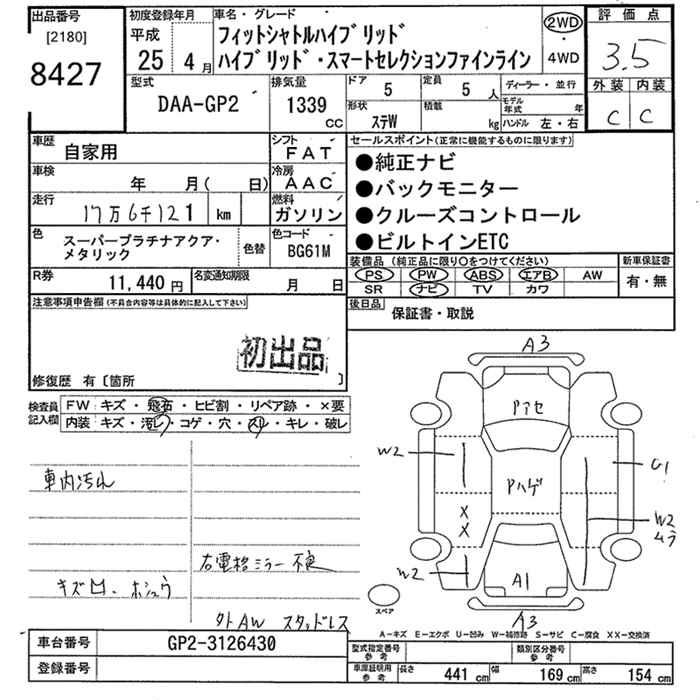 出品番号
[2180]
8427
初度登録年月
平成
25 4月
車名・グレード
フィットシャトルハイブリッド
ハイブリッド・スマートセレクションファインライン
2WD
・
4WD
評価点
3.5
外装 内装
C C
型式
DAA-GP2
排気量
1339
CC
ドア
5
定員
5 人
形状
ステW
積載
kg
ディーラー・並行
モデル年式 年
ハンドル 左・右
車歴
自家用
シフト
FAT
車検
年 月( 日)
冷房
AAC
走行
17万6千121 km
燃料
ガソリン
色
スーパープラチナアクア・
メタリック
色替
色コード
BG61M
R券
11,440 円
名変通知期限
月 日
セールスポイント(正常に機能するものに限ります)
●純正ナビ
●バックモニター
●クルーズコントロール
●ビルトインETC
装備品 (純正品に限り○をつけてください)
PS PW ABS エアB AW
SR ナビ TV カワ
新車保証書
有・無
後日品
保証書・取説
注意事項申告欄(不具合内容等は具体的に記入して下さい)
初出品
修復歴 有〔箇所 〕
検査員
記入欄
FW キズ・飛石・ヒビ割・リペア跡・×要
内装 キズ・汚レ・コゲ・穴・スレ・キレ・破レ
車内汚れ
右電格ミラー不良
外AW スタッドレス
A3
Pアセ
W2
Pハゲ
U1
X
X
W2
ムラ
W2
A1
A3
スペア
A－キズ E－エクボ U－凹み W－補修跡 S－サビ C－腐食 XX－交換済
車台番号
GP2-3126430
登録番号
型式指定番号
参考
類別区分番号
参考
車庫証明用
参考
長さ 441 cm
幅 169 cm
高さ 154 cm